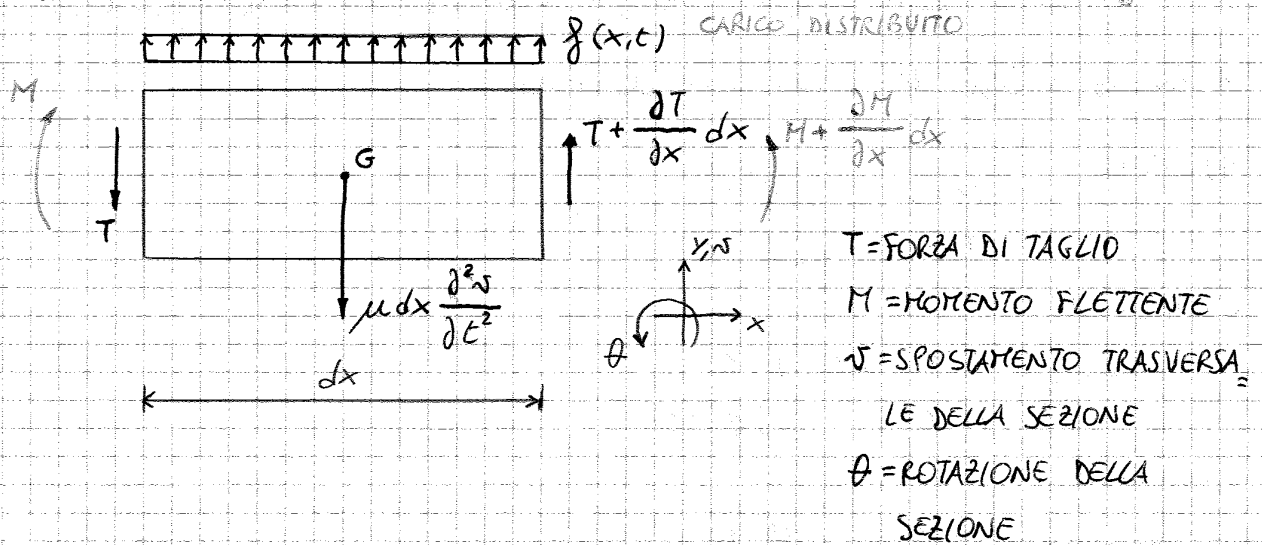 CARICO DISTRIBUITO
f(x,t)
M
T + ∂T/∂x dx
M + ∂M/∂x dx
G
T
μ dx ∂²v/∂t²
y,v
x
θ
dx
T = FORZA DI TAGLIO
M = MOMENTO FLETTENTE
v = SPOSTAMENTO TRASVERSA=
LE DELLA SEZIONE
θ = ROTAZIONE DELLA
SEZIONE